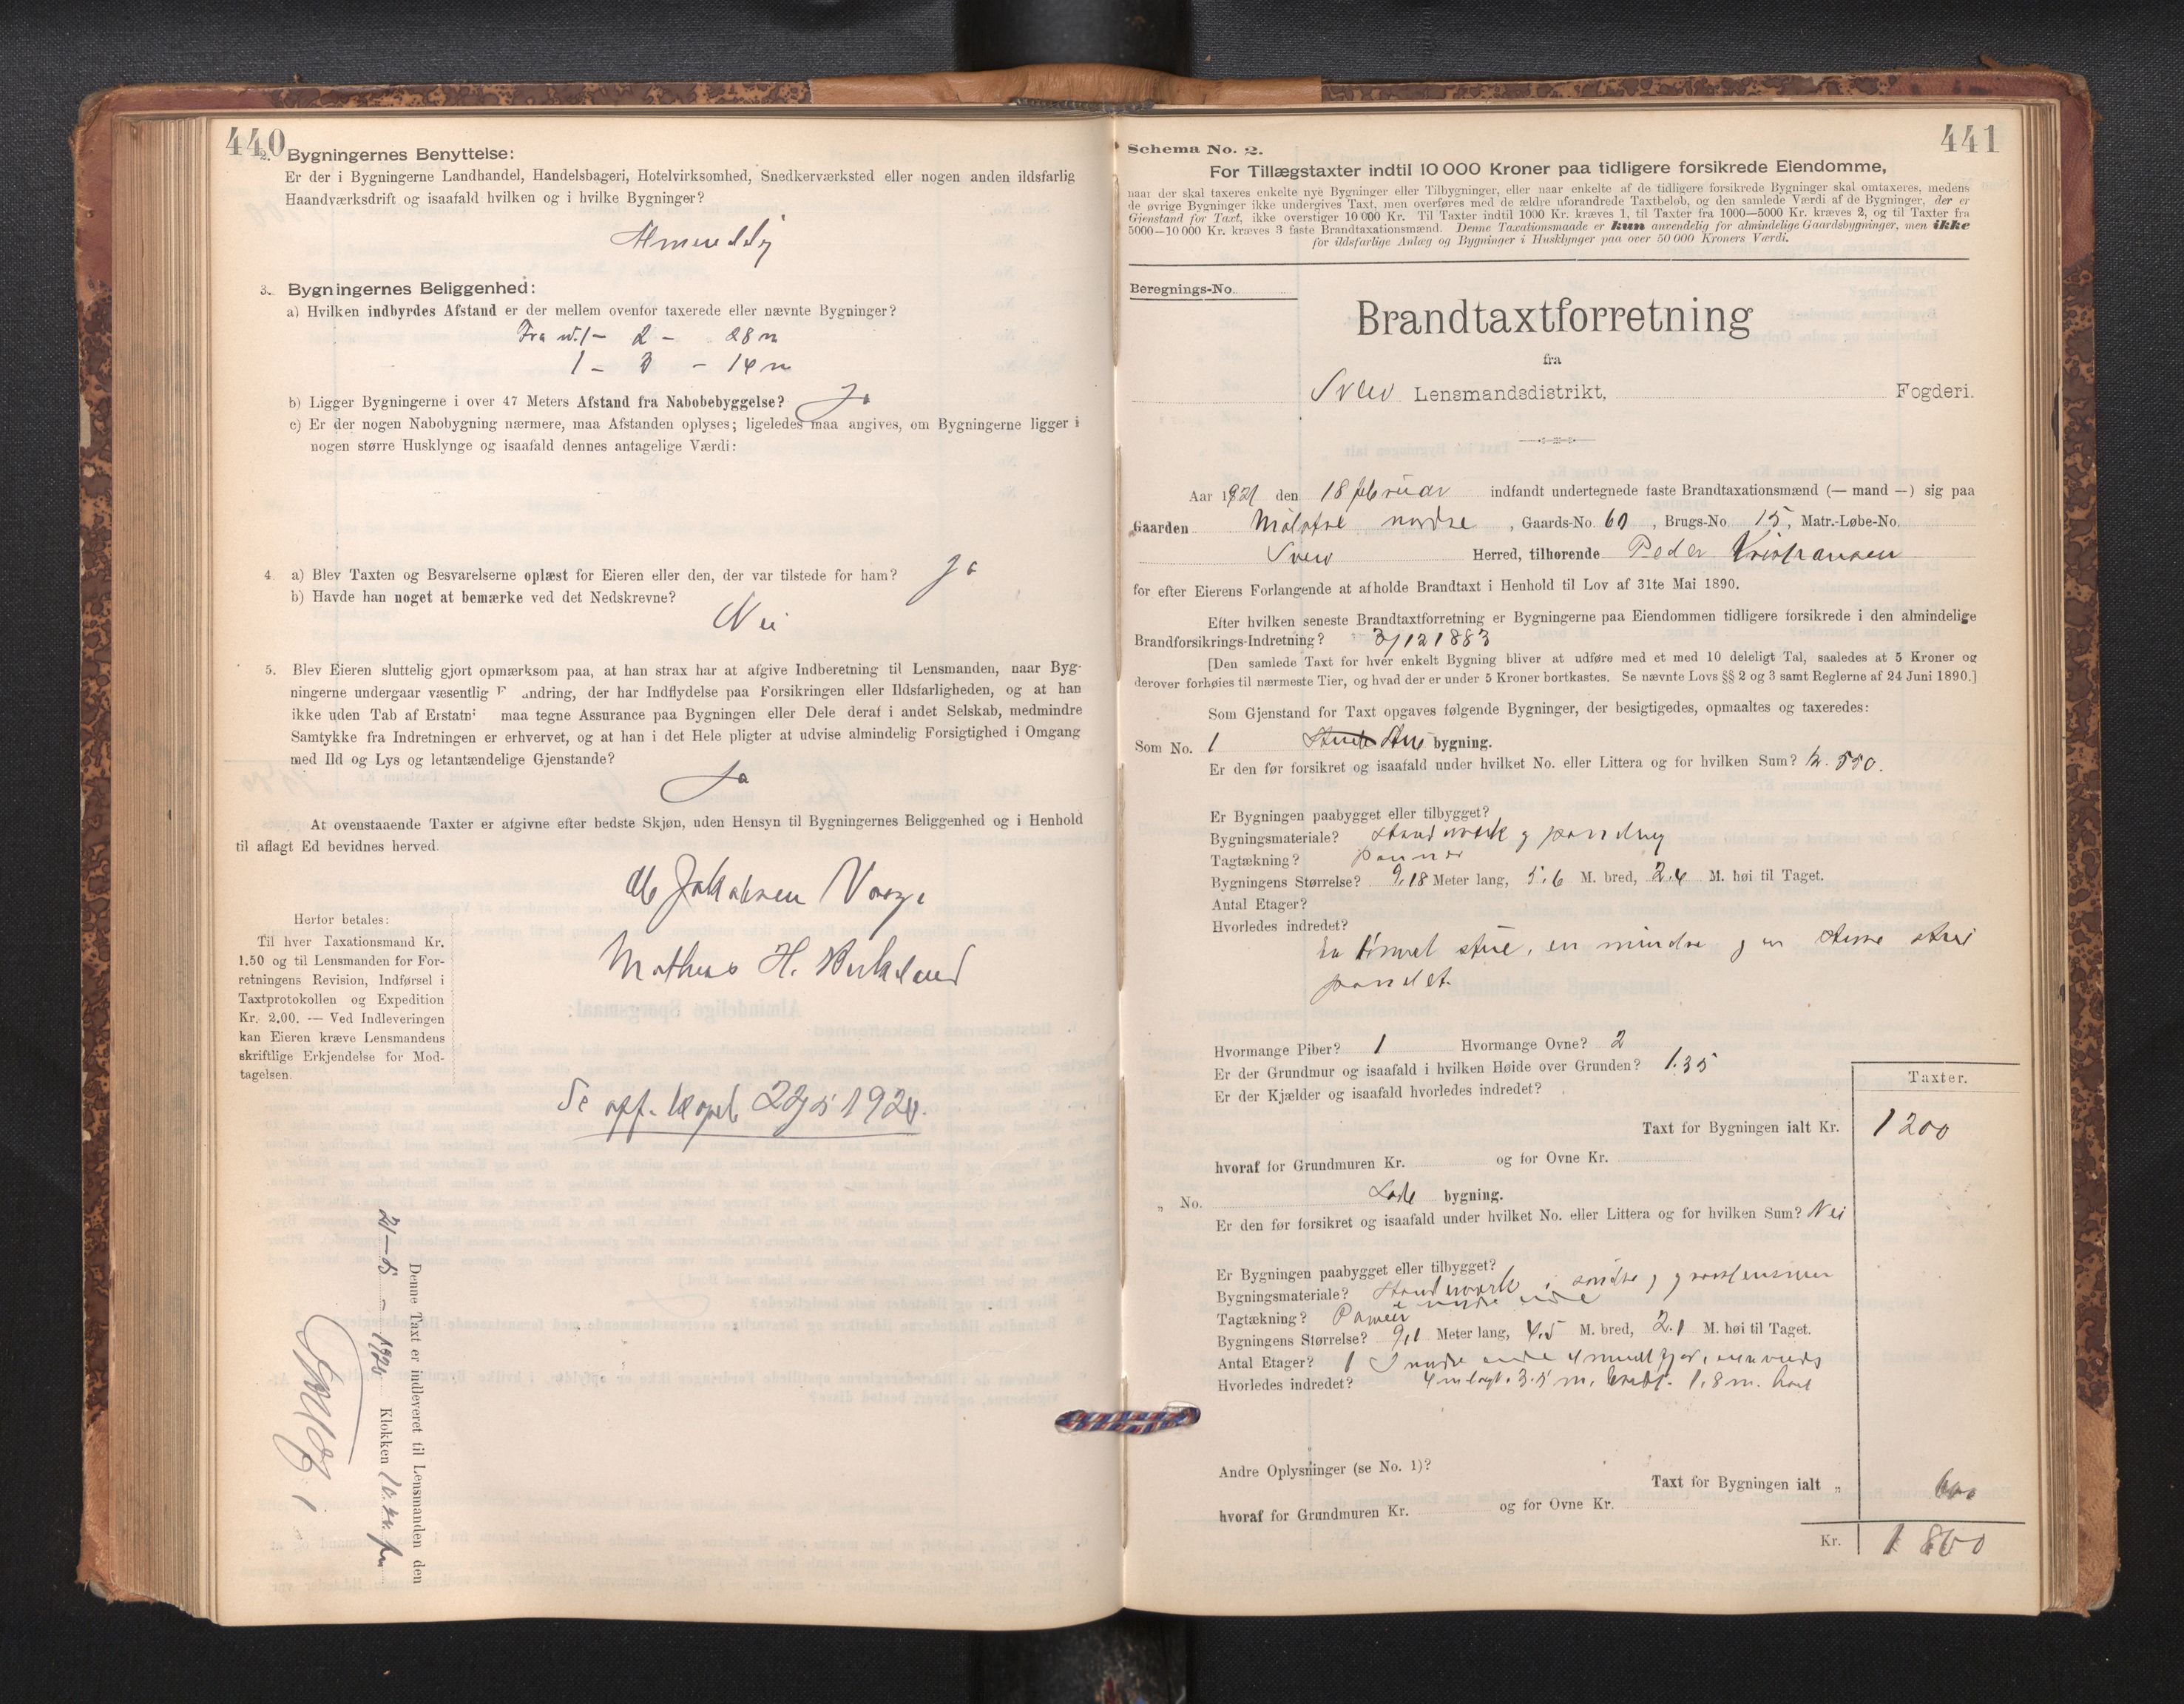 440
2. Bygningernes Benyttelse:
Er der i Bygningerne Landhandel, Handelsbageri, Hotelvirksomhed, Snedkerværksted eller nogen anden ildsfarlig
Haandværksdrift og isaafald hvilken og i hvilke Bygninger?
3. Bygningernes Beliggenhed:
a) Hvilken indbyrdes Afstand er der mellem ovenfor taxerede eller nævnte Bygninger?
Fra N. 1 – 2 – 28 m
1 – 3 – 14 m
b) Ligger Bygningerne i over 47 Meters Afstand fra Nabobebyggelse? Ja
c) Er der nogen Nabobygning nærmere, maa Afstanden oplyses; ligeledes maa angives, om Bygningerne ligger i
nogen større Husklynge og isaafald dennes antagelige Værdi:
4. a) Blev Taxten og Besvarelserne oplæst for Eieren eller den, der var tilstede for ham? Ja
b) Havde han noget at bemærke ved det Nedskrevne?
Nei
5. Blev Eieren sluttelig gjort opmærksom paa, at han strax har at afgive Indberetning til Lensmanden, naar Byg-
ningerne undergaar væsentlig F andring, der har Indflydelse paa Forsikringen eller Ildsfarligheden, og at han
ikke uden Tab af Erstatni maa tegne Assurance paa Bygningen eller Dele deraf i andet Selskab, medmindre
Samtykke fra Indretningen er erhvervet, og at han i det Hele pligter at udvise almindelig Forsigtighed i Omgang
med Ild og Lys og letantændelige Gjenstande?
Ja
At ovenstaaende Taxter er afgivne efter bedste Skjøn, uden Hensyn til Bygningernes Beliggenhed og i Henhold
til aflagt Ed bevidnes herved.
Jakobsen
Mathias H. Birkeland
Herfor betales:
Til hver Taxationsmand Kr.
1.50 og til Lensmanden for For-
retningens Revision, Indførsel i
Taxtprotokollen og Expedition
Kr. 2.00. — Ved Indleveringen
kan Eieren kræve Lensmandens
skriftlige Erkjendelse for Mod-
tagelsen.
Denne Taxt er indleveret til Lensmanden den
Klokken
441
Schema No. 2.
For Tillægstaxter indtil 10 000 Kroner paa tidligere forsikrede Eiendomme,
naar der skal taxeres enkelte nye Bygninger eller Tilbygninger, eller naar enkelte af de tidligere forsikrede Bygninger skal omtaxeres, medens
de øvrige Bygninger ikke undergives Taxt, men overføres med de ældre uforandrede Taxtbeløb, og den samlede Værdi af de Bygninger, der er
Gjenstand for Taxt, ikke overstiger 10 000 Kr. Til Taxter indtil 1000 Kr. kræves 1, til Taxter fra 1000—5000 Kr. kræves 2, og til Taxter fra
5000—10 000 Kr. kræves 3 faste Brandtaxationsmænd. Denne Taxationsmaade er kun anvendelig for almindelige Gaardsbygninger, men ikke
for ildsfarlige Anlæg og Bygninger i Husklynger paa over 50 000 Kroners Værdi.
Beregnings-No.
Brandtaxtforretning
fra
Sveio Lensmandsdistrikt, Fogderi.
Aar 1921 den 18 februar indfandt undertegnede faste Brandtaxationsmænd (— mand —) sig paa
Gaarden nordre, Gaards-No. 60, Brugs-No. 15, Matr.-Løbe-No.
Sveio Herred, tilhørende Peder Kristiansen
for efter Eierens Forlangende at afholde Brandtaxt i Henhold til Lov af 31te Mai 1890.
Efter hvilken seneste Brandtaxtforretning er Bygningerne paa Eiendommen tidligere forsikrede i den almindelige
Brandforsikrings-Indretning? 3/12 1883
[Den samlede Taxt for hver enkelt Bygning bliver at udføre med et med 10 deleligt Tal, saaledes at 5 Kroner og
derover forhøies til nærmeste Tier, og hvad der er under 5 Kroner bortkastes. Se nævnte Lovs §§ 2 og 3 samt Reglerne af 24 Juni 1890.]
Som Gjenstand for Taxt opgaves følgende Bygninger, der besigtigedes, opmaaltes og taxeredes:
Som No. 1 Stue bygning.
Er den før forsikret og isaafald under hvilket No. eller Littera og for hvilken Sum? k. 550.
Er Bygningen paabygget eller tilbygget?
Bygningsmateriale? Standværk
Tagtækning? panner
Bygningens Størrelse? 9,18 Meter lang, 5.6 M. bred, 2.4 M. høi til Taget.
Antal Etager?
Hvorledes indredet?
stue, en mindre
Hvormange Piber? 1 Hvormange Ovne? 2
Er der Grundmur og isaafald i hvilken Høide over Grunden? 1.35
Er der Kjælder og isaafald hvorledes indredet?
Taxter.
Taxt for Bygningen ialt Kr. 1200
hvoraf for Grundmuren Kr. og for Ovne Kr.
„ No. Lade bygning.
Er den før forsikret og isaafald under hvilket No. eller Littera og for hvilken Sum? Nei
Er Bygningen paabygget eller tilbygget?
Bygningsmateriale? Standværk i søndre
Tagtækning? Panner
Bygningens Størrelse? 9,1 Meter lang, 4.5 M. bred, 2.1 M. høi til Taget.
Antal Etager? 1
Hvorledes indredet? 4 m langt. 3.5 m. bredt. 1.8 m. høit
Andre Oplysninger (se No. 1)?
Taxt for Bygningen ialt „ 600
hvoraf for Grundmuren Kr. og for Ovne Kr.
Kr. 1800